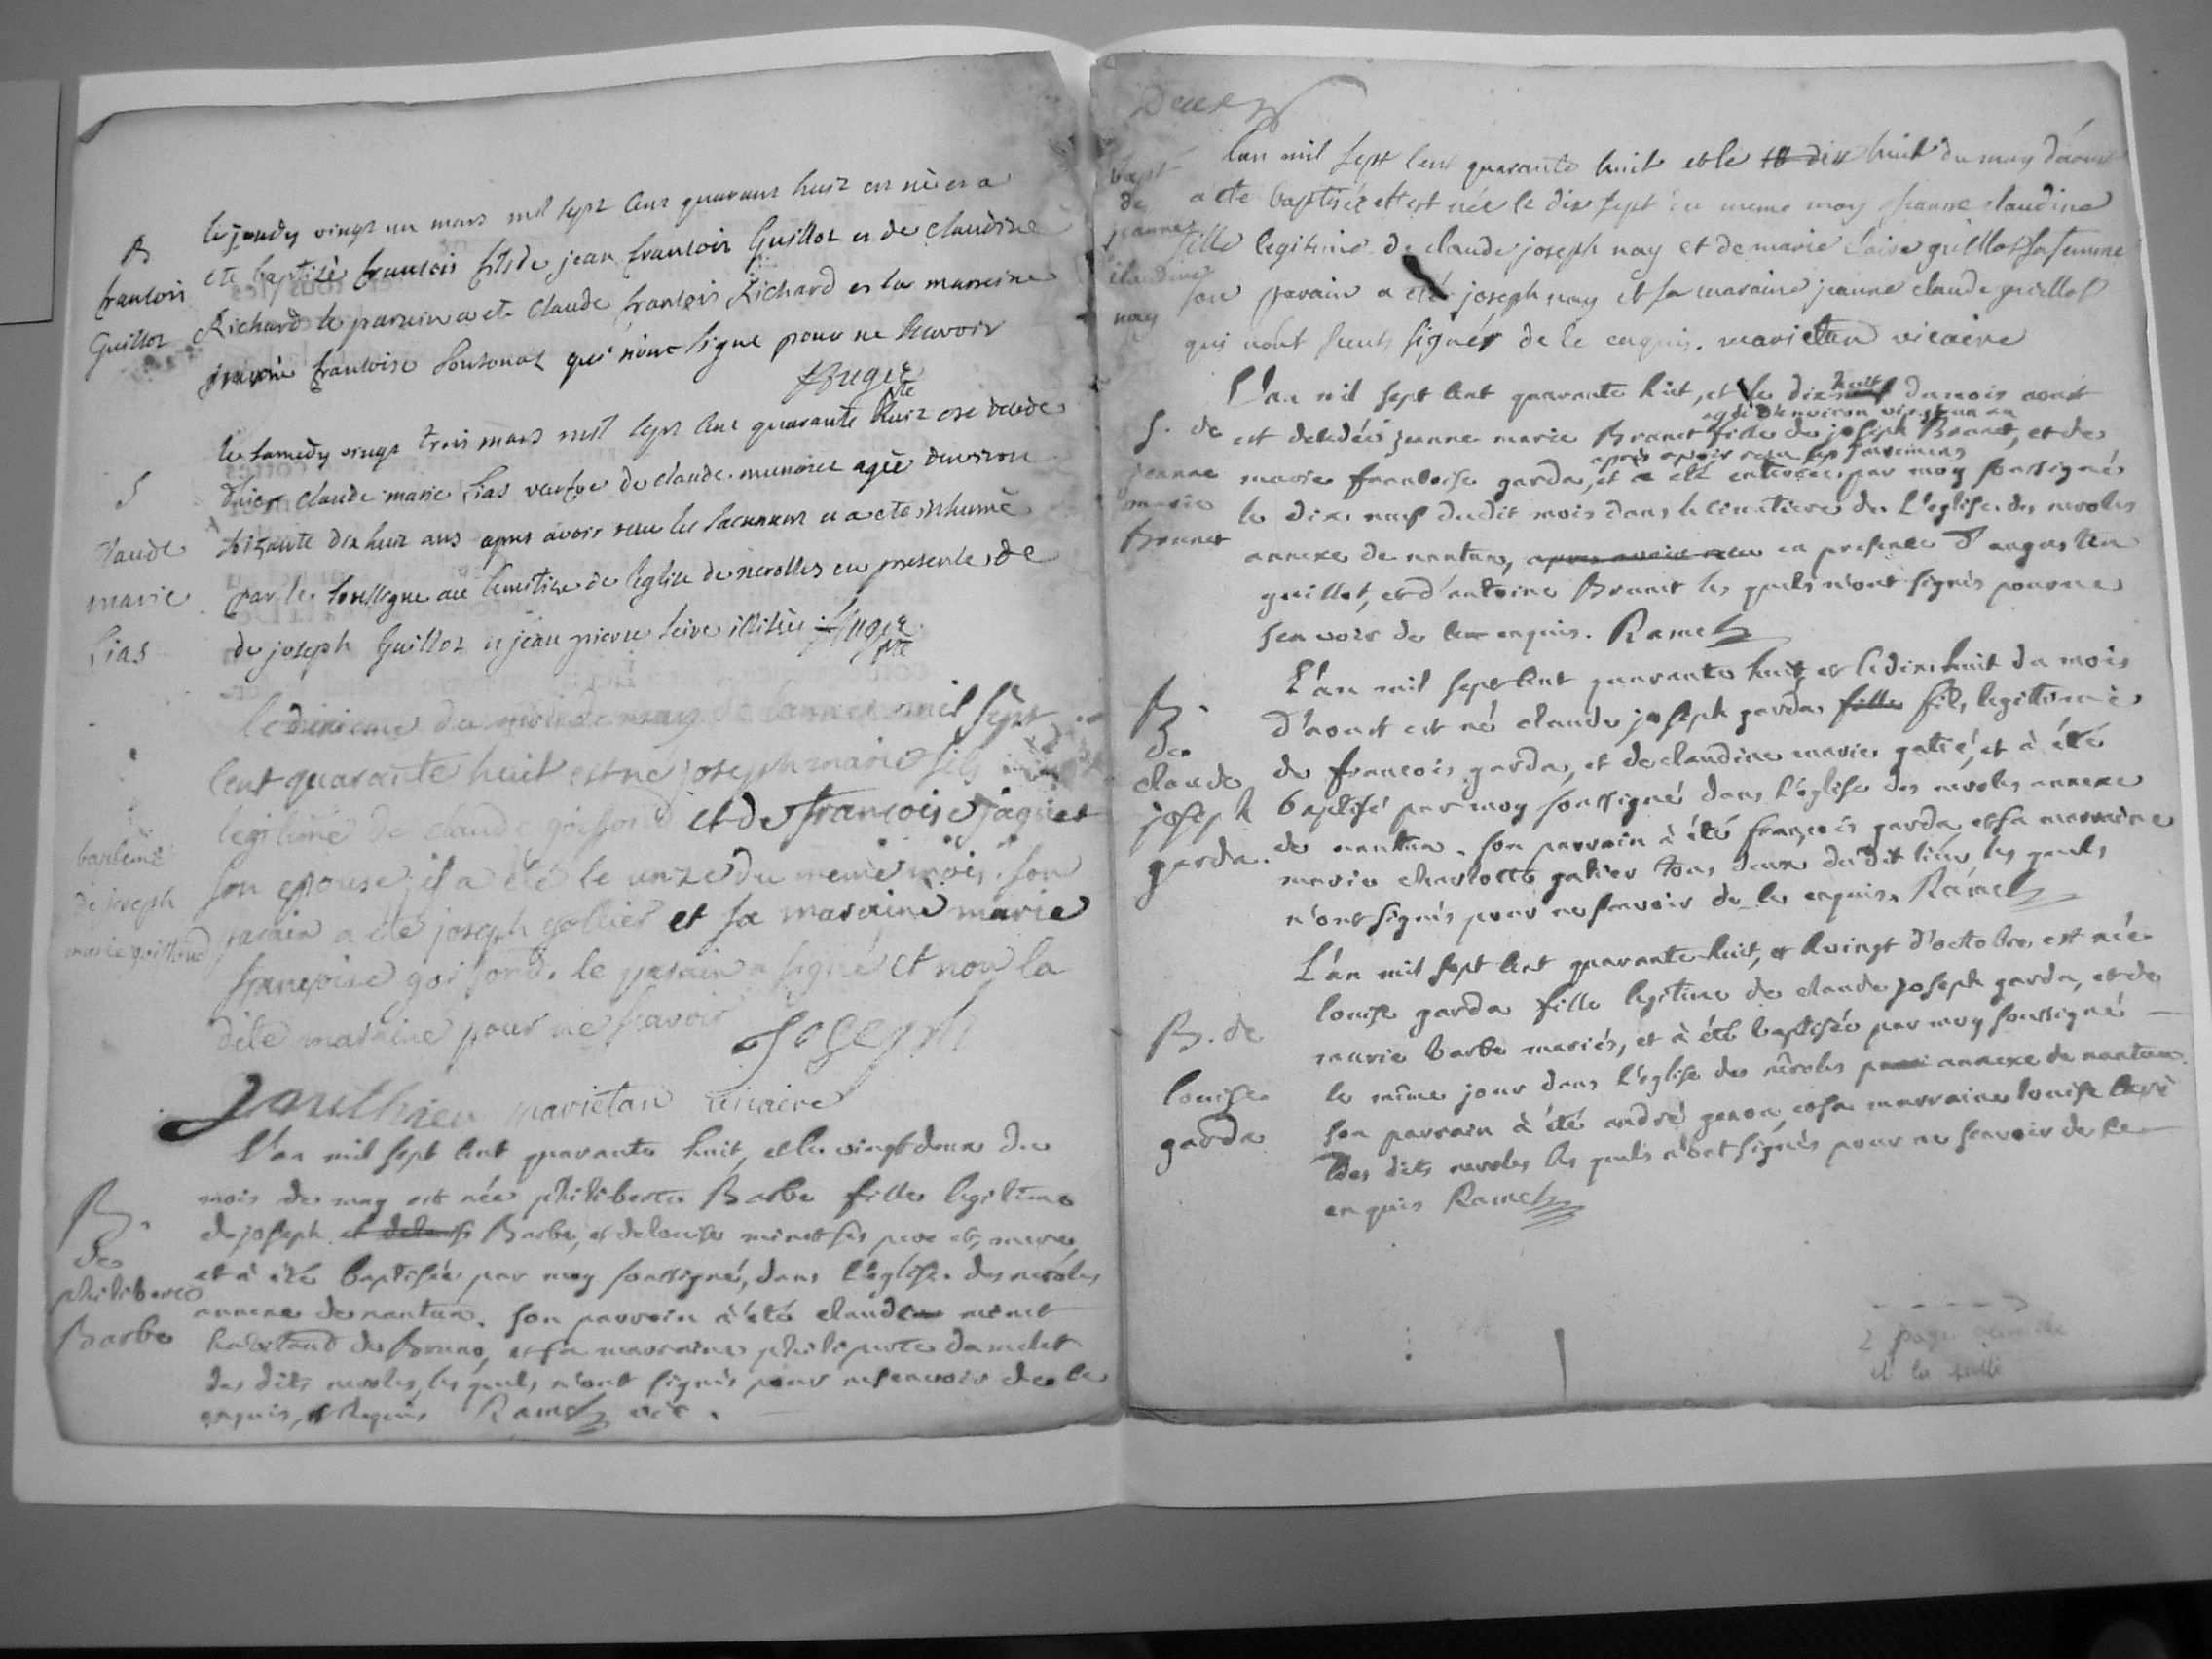 B
francois
Guillot
le jeudy vingt un mars mil sept cent quarante huit est né et a
ete baptisé francois fils de jean francois Guillot et de claudine
Richard le parrain a ete claude francois Richard et la marreine
francoise qui n'ont signé pour ne scavoir
S
claude
marie
Lias
le samedy vingt trois mars mil sept cent quarante huit est decedé
claude marie Lias veufve de claude agée denviron
soixante dix huit ans apres avoir receu les sacremens et a ete inhumé
par le soussigne au cemitiere de leglise de nerolles en presence de
de joseph Guillot et jean pierre illitérés
bapteme
de joseph
marie goiffond
le dixieme du mois de may de lannee mil sept
cent quarante huit est né joseph marie fils
legitime de claude goiffond et de francoise jaquet
son epouse, il a été le unze du meme mois. son
parain a été joseph gollier et sa maraine marie
françoise goiffond. le parain a signé et non la
dite maraine pour ne scavoir
Joseph
mariétan vicaire
B.
de
philiberte
Barbe
L'an mil sept cent quarante huit, et le vingt deux du
mois de may est née philiberte Barbe fille legitime
de joseph Barbe, et de louise minet ses pere et, mere,
et à été baptisée par moy soussigné, dans l'eglise des neroles
annexe de nantua. son parrain à été claude minet
habitand de Bruno, et sa marraine philiperte damelet
des dits neroles, les quels n'ont signés pour ne scavoir de ce
enquis, et requis Ramel vic.
Deux
bapt
de
jeanne
claudine
nay
Lan mil sept cent quarante huit et le dix huit du may d'aoust
a été baptisée et est née le dix sept du meme may jeanne claudine
fille legitime de claude joseph nay et de marie claire guillot sa femme
son parain a été joseph nay et sa maraine jeanne claude guillot
qui n'ont sceut signér de le enquis. marietan vicaire
S. de
jeanne
marie
Brunet
L'an mil sept cent quarante huit, et le dix huit du mois aoust
agée d'environ vingt un an
est decedée jeanne marie Brunet fille de joseph Brunet, et de
après avoir reçu les sacremens
marie francoise garda, et a été enterrée par moy soussigné
le dix neuf dudit mois dans le cimetiere de L'eglise des neroles
annexe de nantua, apres avoir reçu en presence d'augustin
guillot, et d'antoine Brunet les quels n'ont signés pour ne
scavoir de ce enquis. Ramel
B.
de
claude
joseph
garda.
L'an mil sept cent quarante huit, et le dix huit du mois
d'aoust est né claude joseph garda fille fils legittime
de francois garda, et de claudine marie galié, et à été
baptisé par moy soussigné dans l'église des neroles annexe
de nantua. son parrain à été françois garda, et sa marraine
marie charlotte galier tous deux du dit lieu les quels
n'ont signés pour ne scavoir de ce enquis. Ramel
B. de
louise
garda
L'an mil sept cent quarante huit, et le vingt d'octobre est née
louise garda fille legitime de claude joseph garda, et de
marie barbe mariés, et à été baptisée par moy soussigné
le même jour dans l'église des nêroles annexe de nantua.
son parrain à été andré genon, et sa marraine louise
des dits neroles les quels n'ont signés pour ne scavoir de ce
enquis Ramel
2 page
et la suite